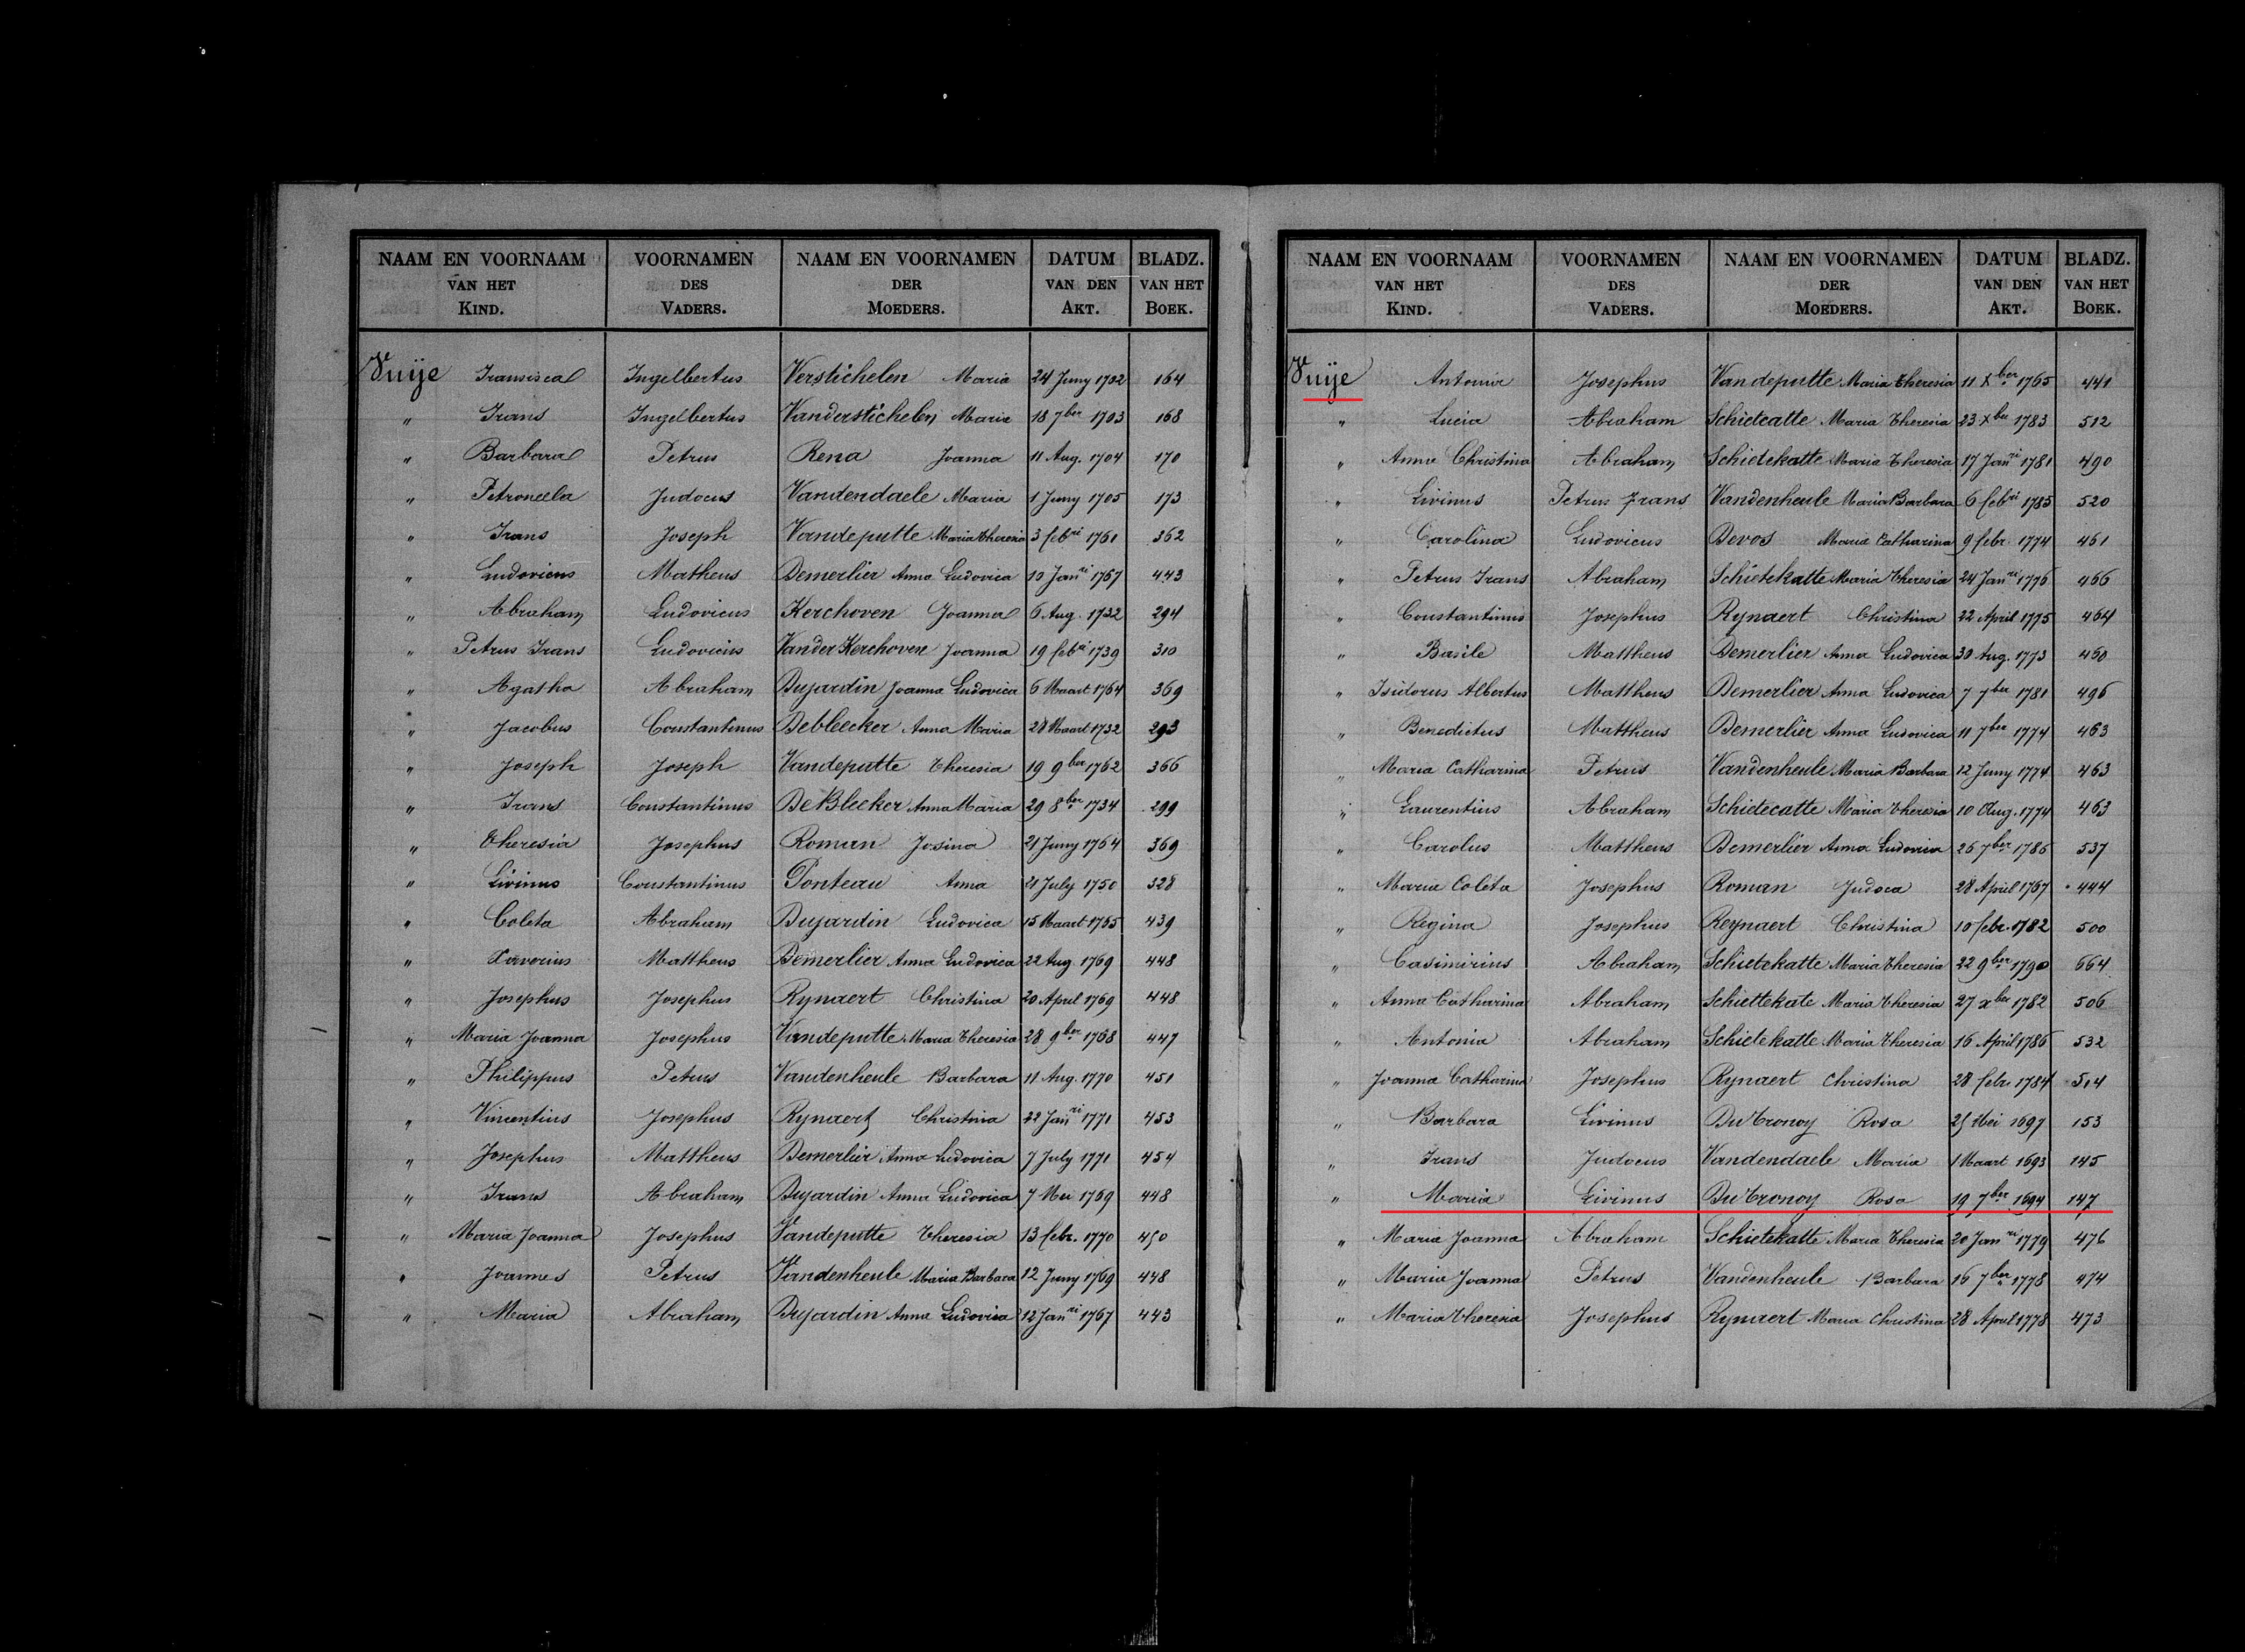 NAAM EN VOORNAAM VAN HET KIND. VOORNAMEN DES VADERS. NAAM EN VOORNAMEN DER MOEDERS. DATUM VAN DEN AKT. BLADZ. VAN HET BOEK.
Vuije Fransisca Ingelbertus Verstichelen Maria 24 Juny 1702 164
" Frans Ingelbertus Vanderstichelen Maria 18 7ber 1703 168
" Barbara Petrus Rena Joanna 11 Aug. 1704 170
" Petronella Judocus Vandendaele Maria 1 Juny 1705 173
" Frans Joseph Vandeputte Maria Theresia 3 febri 1761 362
" Ludovicus Matheus Demerlier Anna Ludovica 10 Janri 1767 443
" Abraham Ludovicus Kerchoven Joanna 6 Aug. 1732 294
" Petrus Frans Ludovicus Van der Kerchoven Joanna 19 febri 1739 310
" Agatha Abraham Dujardin Joanna Ludovica 6 Maart 1764 369
" Jacobus Constantinus Debleecker Anna Maria 28 Maart 1732 293
" Joseph Joseph Vandeputte Theresia 19 9ber 1762 366
" Frans Constantinus De Bleeker Anna Maria 29 8ber 1734 299
" Theresia Josephus Roman Josina 21 Juny 1764 369
" Livinus Constantinus Ponteau Anna 21 July 1750 328
" Coleta Abraham Dujardin Ludovica 15 Maart 1765 439
" Xaverius Mattheus Demerlier Anna Ludovica 22 Aug. 1769 448
" Josephus Josephus Rynaert Christina 20 April 1769 448
" Maria Joanna Josephus Vandeputte Maria Theresia 28 9ber 1768 447
" Philippus Petrus Vandenheule Barbara 11 Aug. 1770 451
" Vincentius Josephus Rynaert Christina 22 Janri 1771 453
" Josephus Mattheus Demerlier Anna Ludovica 7 July 1771 454
" Frans Abraham Dujardin Anna Ludovica 7 Mei 1769 448
" Maria Joanna Josephus Vandeputte Theresia 13 febr. 1770 450
" Joannes Petrus Vandenheule Maria Barbara 12 Juny 1769 448
" Maria Abraham Dujardin Anna Ludovica 12 Janri 1767 443
NAAM EN VOORNAAM VAN HET KIND. VOORNAMEN DES VADERS. NAAM EN VOORNAMEN DER MOEDERS. DATUM VAN DEN AKT. BLADZ. VAN HET BOEK.
Vuije Antonia Josephus Vandeputte Maria Theresia 11 Xber 1765 441
" Lucia Abraham Schietcatte Maria Theresia 23 Xber 1783 512
" Anna Christina Abraham Schietekatte Maria Theresia 17 Janri 1781 490
" Livinus Petrus Frans Vandenheule Maria Barbara 6 febri 1785 520
" Carolina Ludovicus Devos Maria Catharina 9 febr. 1774 461
" Petrus Frans Abraham Schietekatte Maria Theresia 24 Janri 1776 466
" Constantinus Josephus Rynaert Christina 22 April 1775 464
" Basile Mattheus Demerlier Anna Ludovica 30 Aug. 1773 460
" Isidorus Albertus Mattheus Demerlier Anna Ludovica 7 7ber 1781 496
" Benedictus Mattheus Demerlier Anna Ludovica 11 7ber 1774 463
" Maria Catharina Petrus Vandenheule Maria Barbara 12 Juny 1774 463
" Laurentius Abraham Schietecatte Maria Theresia 10 Aug. 1774 463
" Carolus Mattheus Demerlier Anna Ludovica 26 7ber 1786 537
" Maria Coleta Josephus Roman Judoca 28 April 1767 444
" Regina Josephus Reynaert Christina 10 febr. 1782 500
" Casimirius Abraham Schietekatte Maria Theresia 22 9ber 1790 664
" Anna Catharina Abraham Schiettekate Maria Theresia 27 xber 1782 506
" Antonia Abraham Schietekatte Maria Theresia 16 April 1786 532
" Joanna Catharina Josephus Rynaert Christina 28 febr. 1784 514
" Barbara Livinus Du Tronoy Rosa 25 Mei 1697 153
" Frans Judocus Vandendaele Maria 1 Maart 1693 145
" Maria Livinus Du Tronoy Rosa 19 7ber 1694 147
" Maria Joanna Abraham Schietekatte Maria Theresia 20 Janri 1779 476
" Maria Joanna Petrus Vandenheule Barbara 16 7ber 1778 474
" Maria Theresia Josephus Rynaert Maria Christina 28 April 1778 473